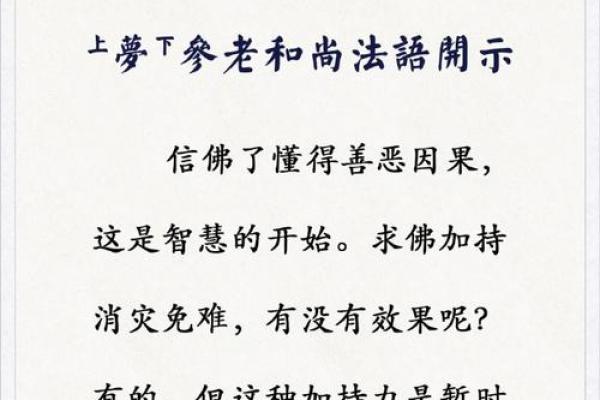 上夢下參老和尚法語開示
信佛了懂得善恶因果，
这是智慧的开始。求佛加持
消灾免难，有没有效果呢？
有的，但这种加持力是暂时